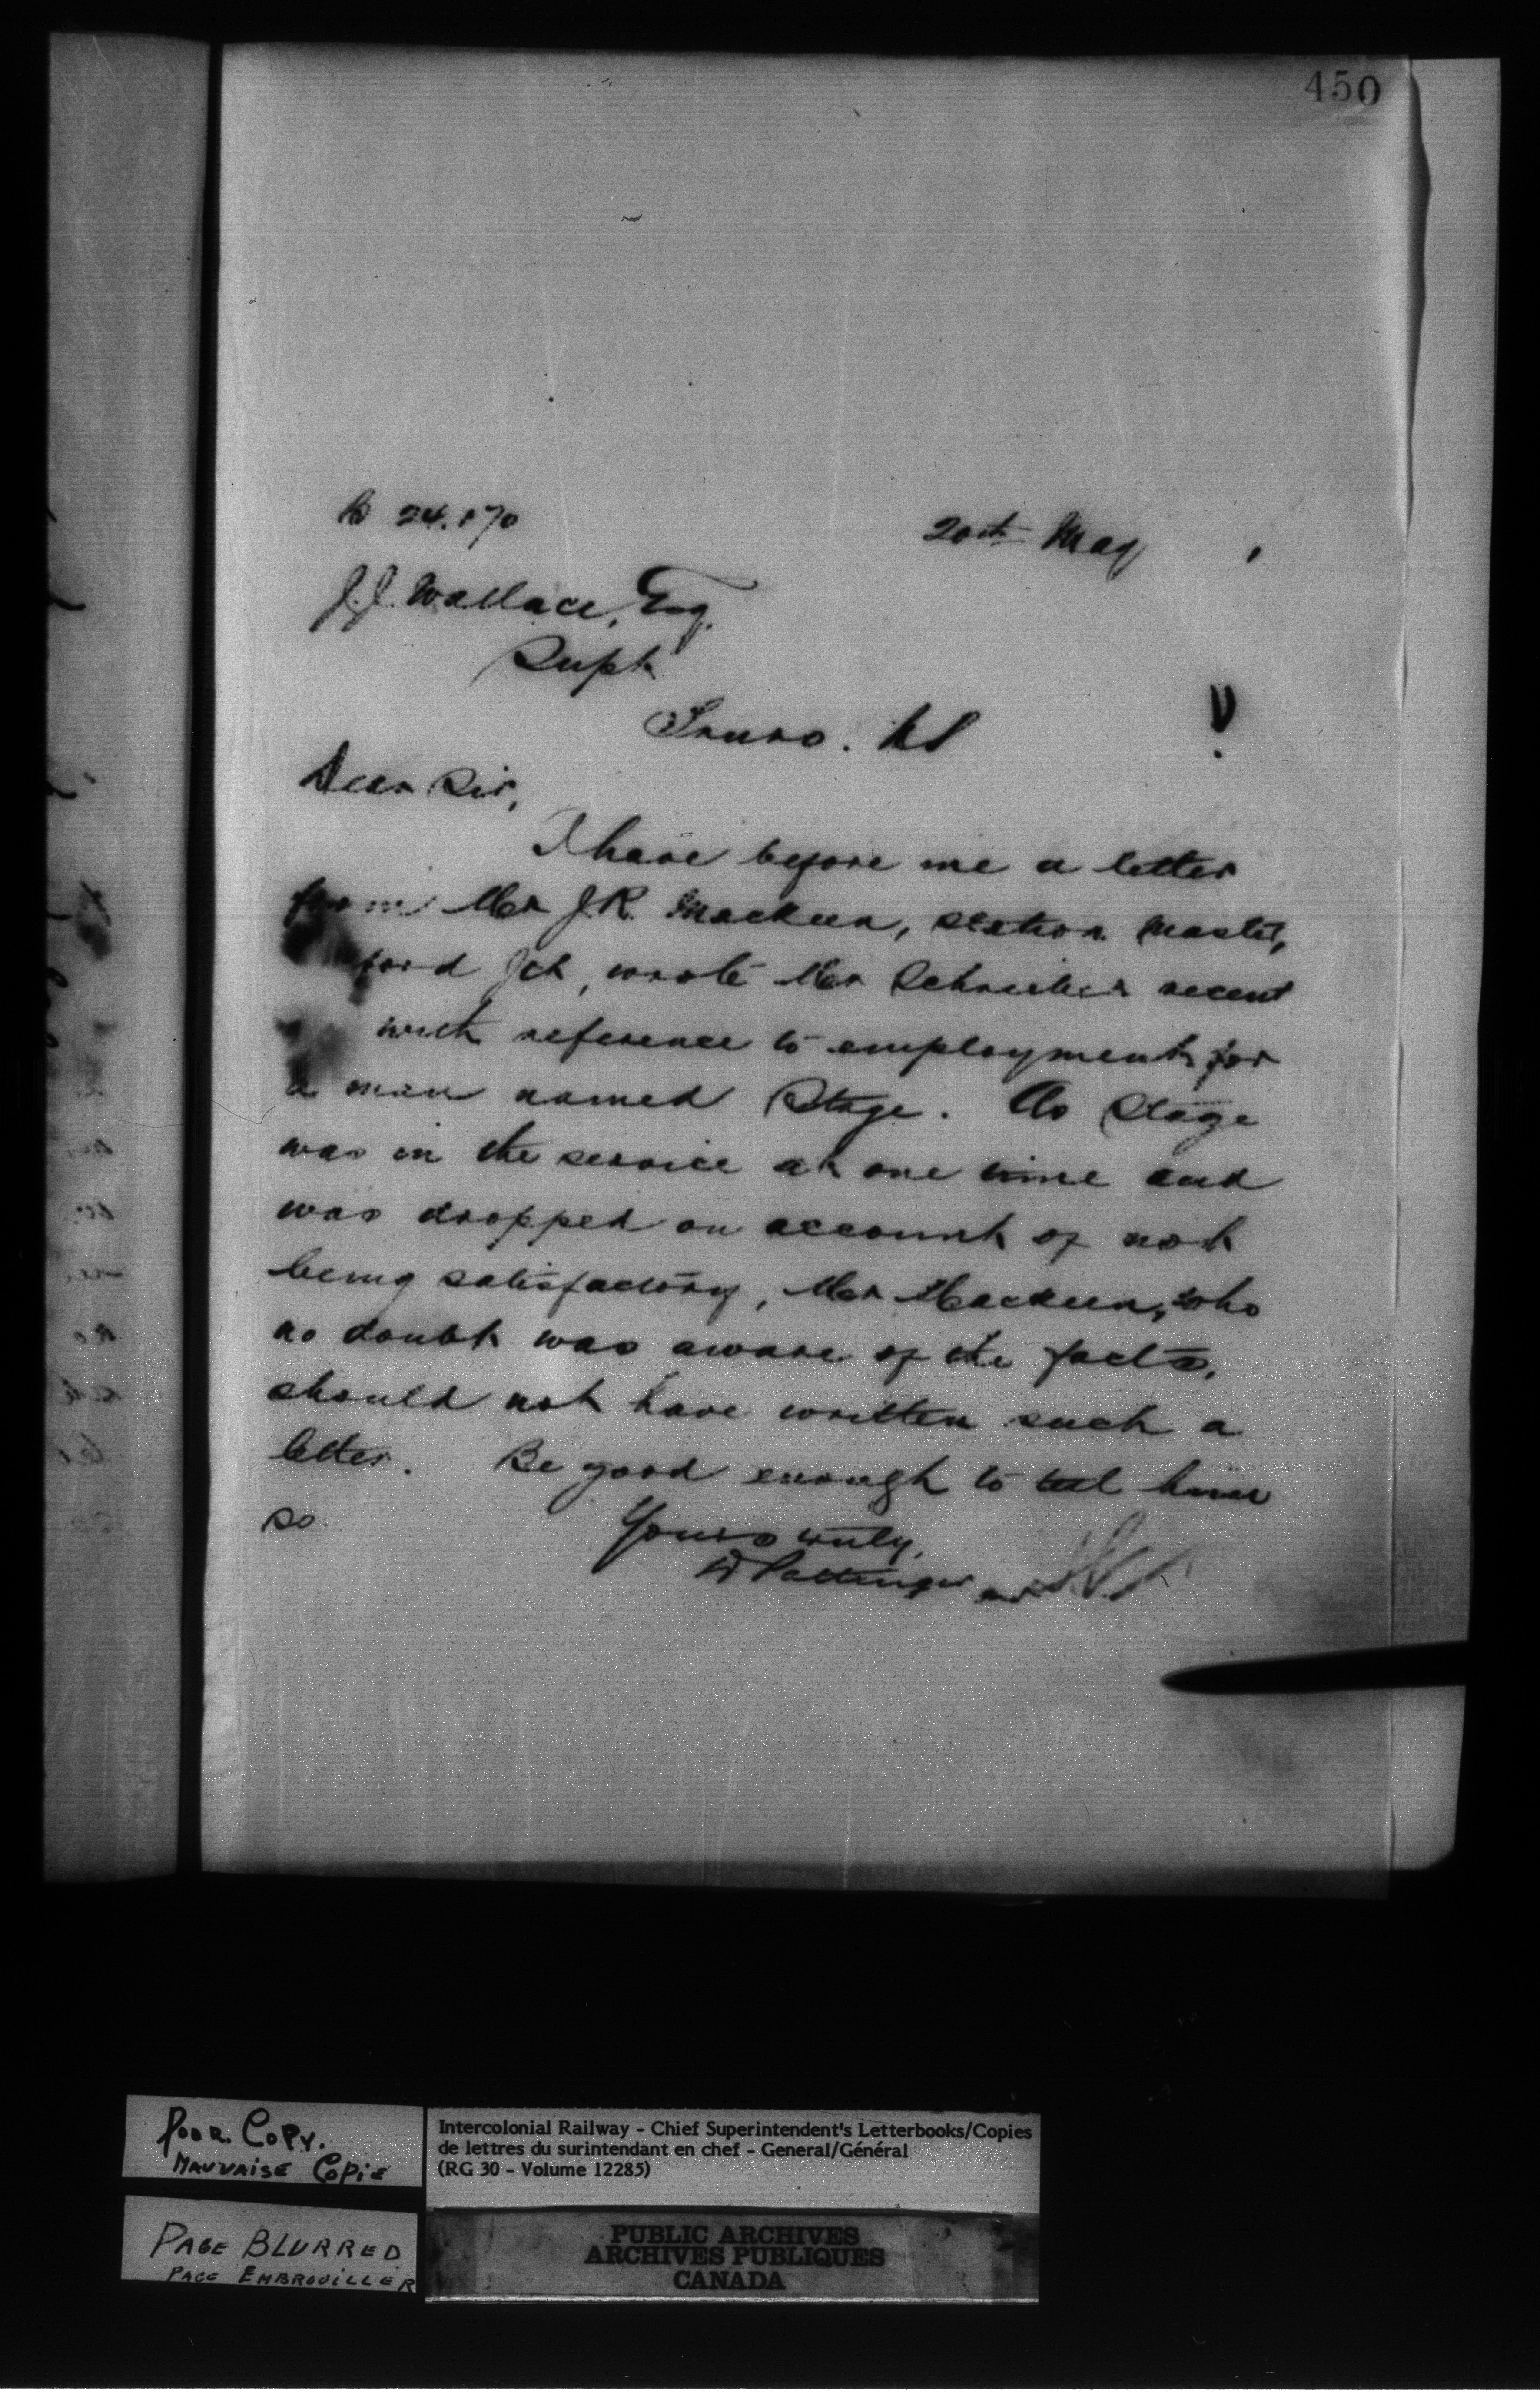 450
24.170
20th May
J.J. Wallace, Esq.
Supt
Truro. NS
Dear Sir,
I have before me a letter
from Mr J.R. Mackeen, station master,
ford Jct, wrote Mr Schreiber recent
with reference to employment for
a man named Stage. As Stage
was in the service at one time and
was dropped on account of not
being satisfactory, Mr Mackeen, who
no doubt was aware of the facts,
should not have written such a
letter. Be good enough to tell him
so.
Yours truly,
D Pottinger
Poor Copy.
Mauvaise Copie
Page Blurred
Page Embrouiller
Intercolonial Railway - Chief Superintendent's Letterbooks/Copies
de lettres du surintendant en chef - General/Général
(RG 30 - Volume 12285)
PUBLIC ARCHIVES
ARCHIVES PUBLIQUES
CANADA